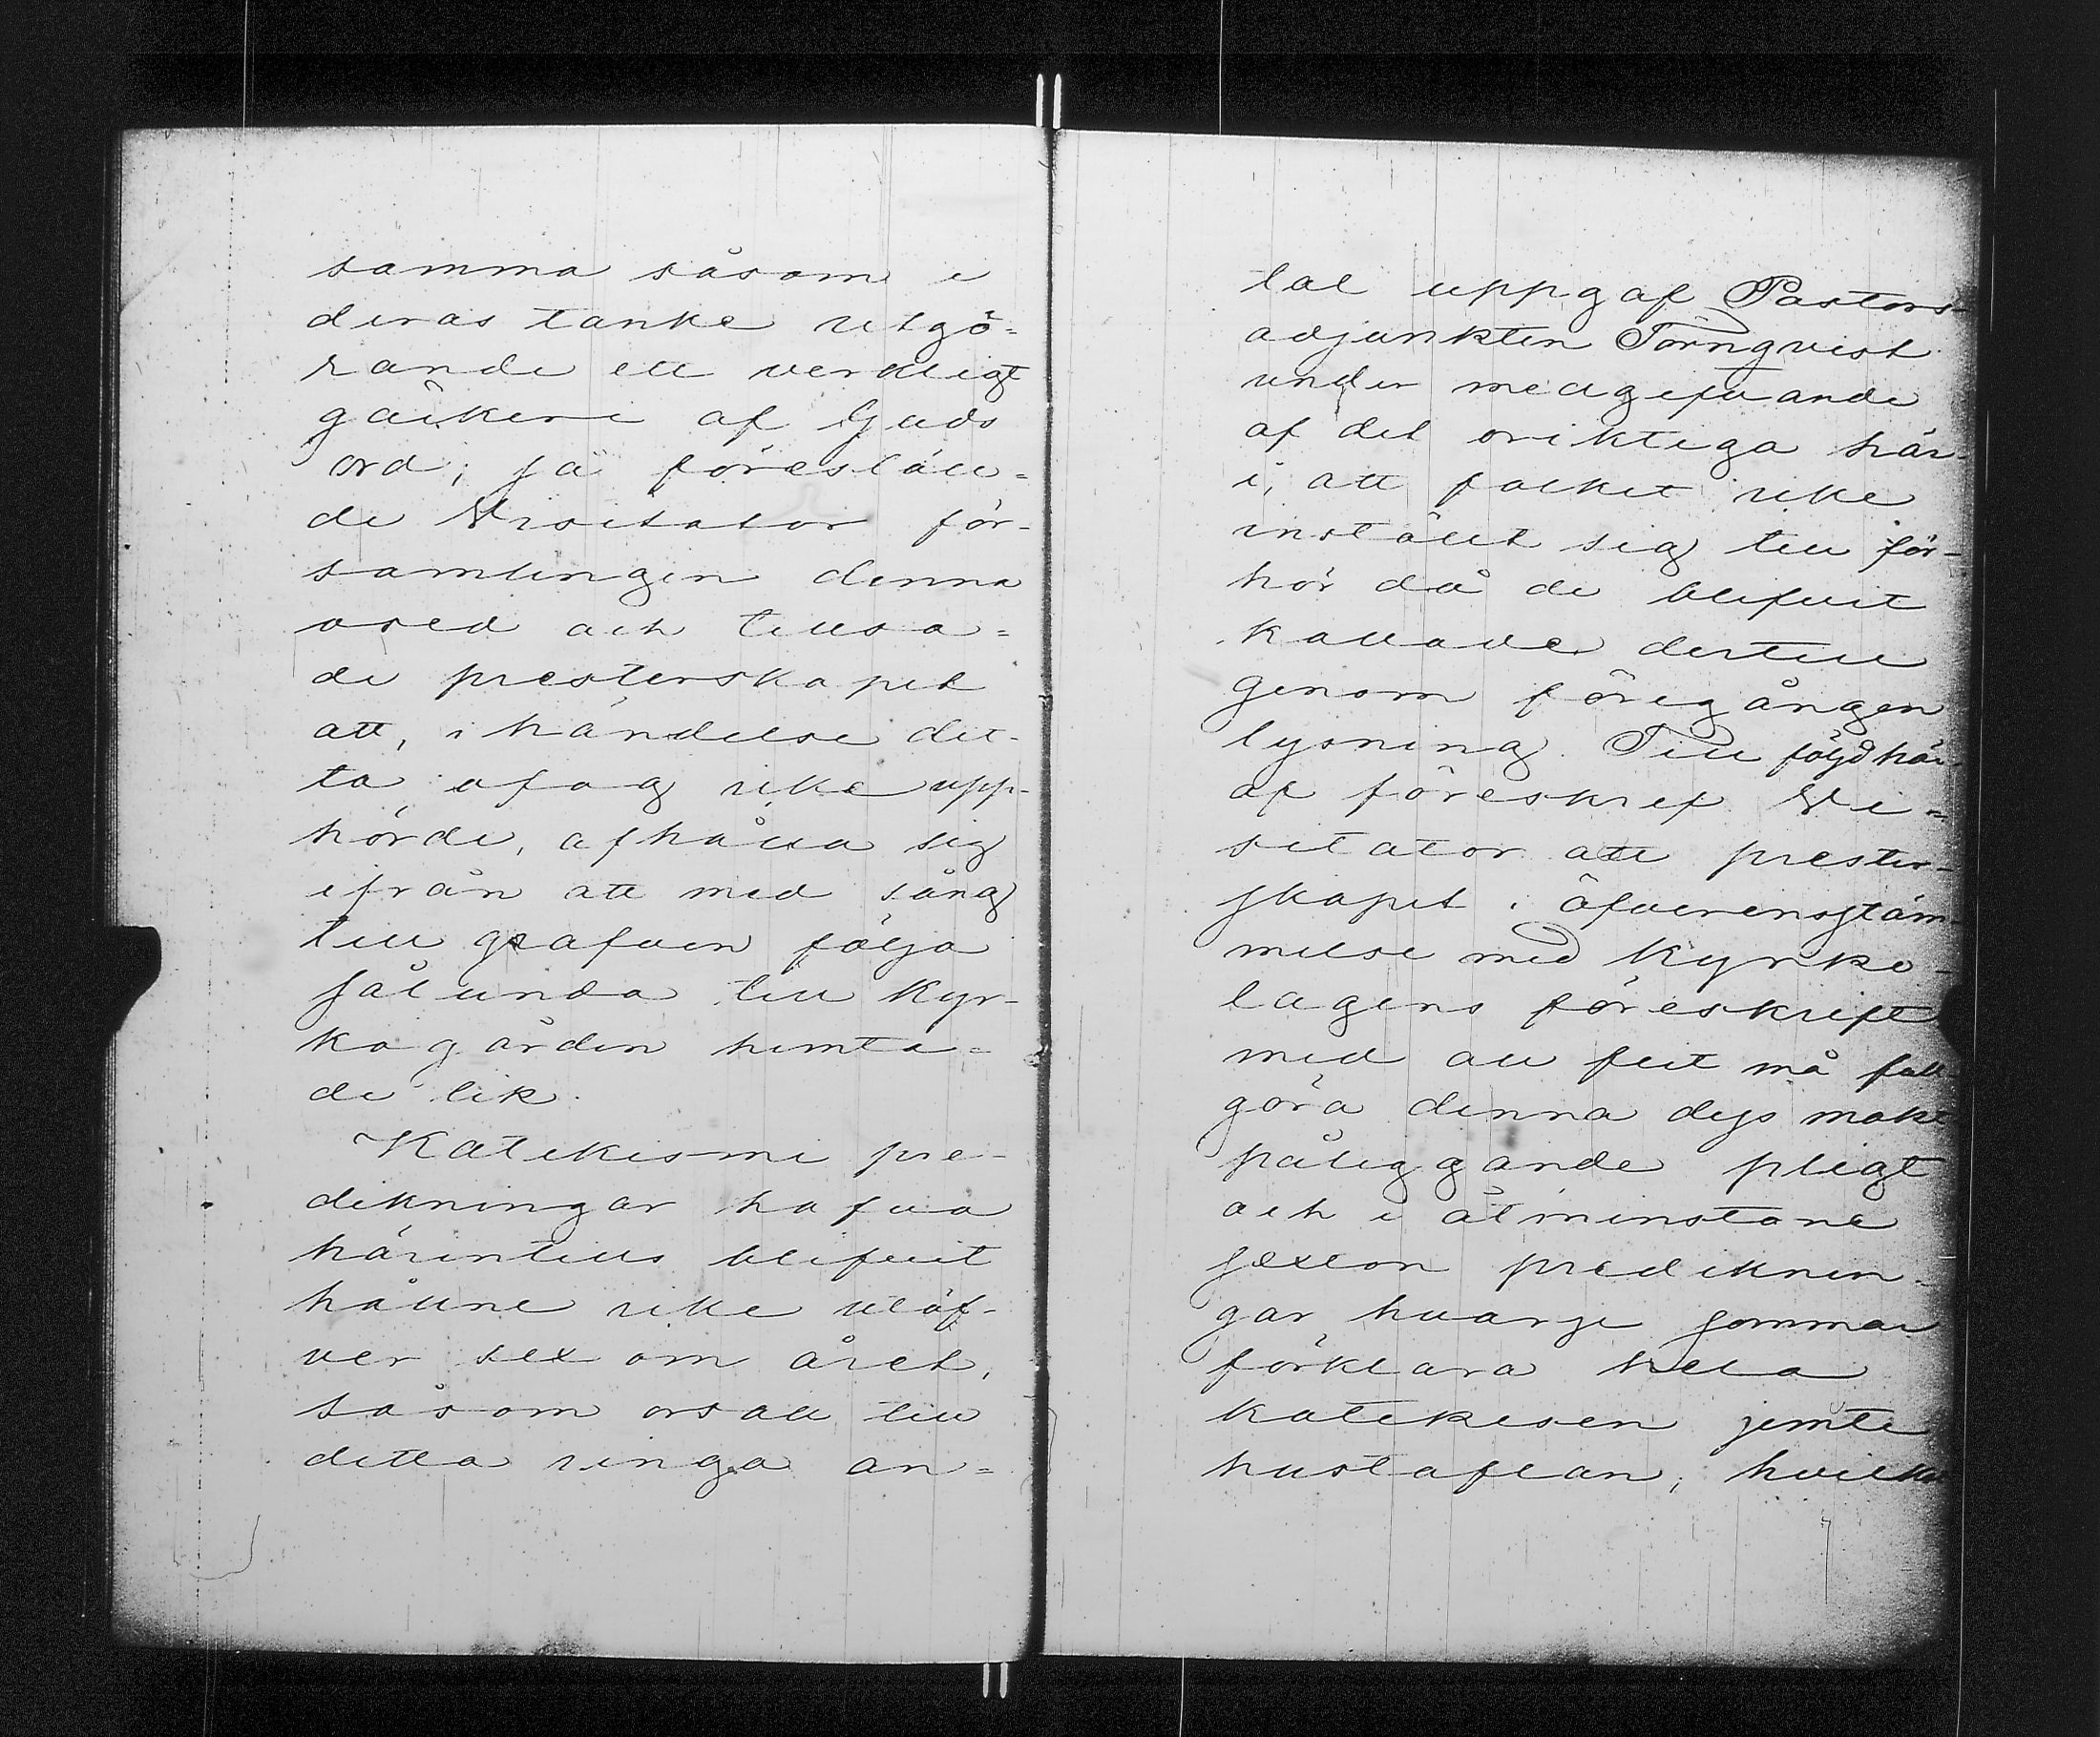 samma såsom i
deras tanke utgö=
rande ett verkligt
gäckeri af Guds
ord; så förestäl=
de Visitator för-
samlingen denna
osed och tillsa=
de presterskapet
att, i händelse det-
ta ofog icke upp-
hörde, afhålla sig
ifrån att med sång
till grafven följa
sålunda till Kyr-
kogården hemta=
de lik.
Katekismi pre-
dikningar hafva
härintills blifvit
hållne icke utöf-
ver sex om året,
såsom orsak till
detta ringa an=
tal uppgaf Pastors-
adjunkten Törnqvist
under medgifvande
af det oriktiga här-
i, att folket icke
inställt sig till för-
hör då de blifvit
kallade dertill
genom föregången
lysning. Till följd här-
af föreskref Vi=
sitator att prester-
skapet i öfverensstäm-
melse med Kyrko-
lagens föreskrift
med all flit må full-
göra denna dess makt
påliggande pligt
och i åtminstone
sexton prediknin-
gar hvarje sommar
förklara hela
katekesen jemte
hustaflan, hvilka